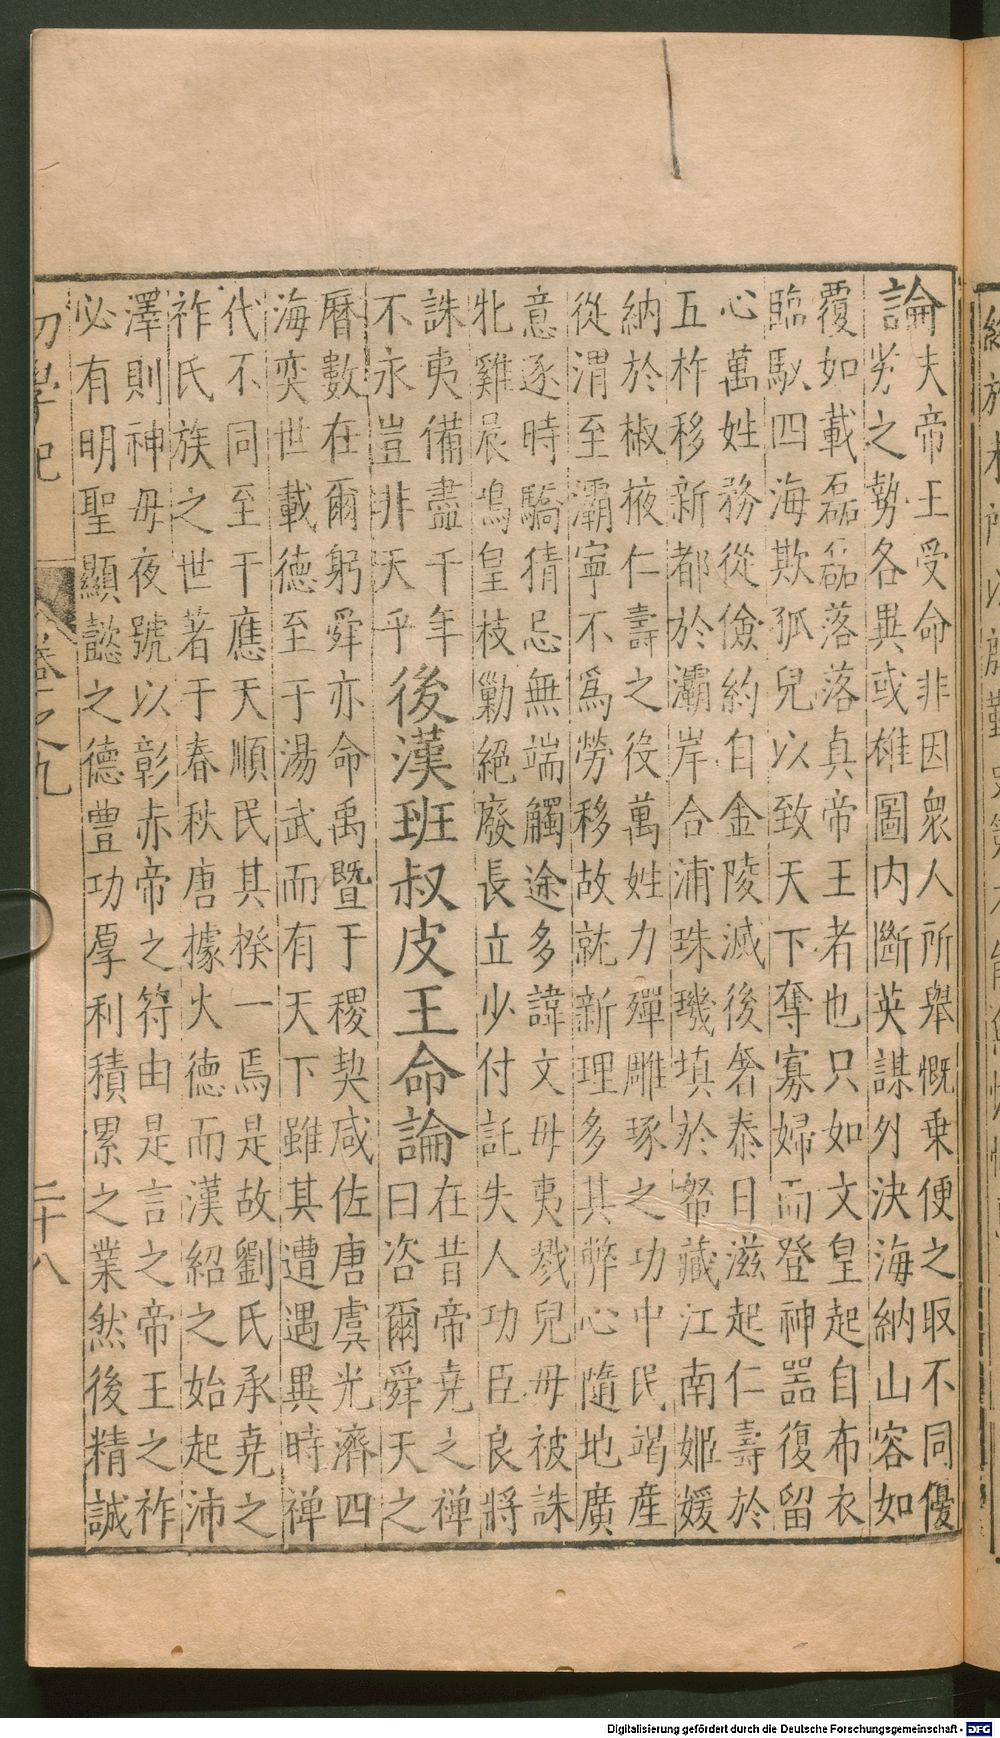 論
夫帝王受命非因衆人所舉慨乗便之取不同優
劣之勢各異或雄圖内斷英謀外決海納山容如
覆如載磊磊落落真帝王者也只如文皇起自布衣
臨馭四海欺孤兒以致天下奪寡婦而登神噐復留
心萬姓務從儉約自金陵滅後奢泰日滋起仁壽於
五柞移新都於灞岸合浦珠璣填於帑藏江南姬媛
納於椒掖仁壽之役萬姓力殫雕琢之功中民竭産
從渭至灞寧不爲勞移故就新理多其弊心隨地廣
意逐時驕猜忌無端觸途多諱文毋夷戮兒毋被誅
牝雞晨鳴皇枝勦絕廢長立少付託失人功臣良將
誅夷備盡千年
不永豈非天乎
後漢班叔皮王命論
在昔帝堯之禅
曰咨爾舜天之
曆數在爾躬舜亦命禹暨于稷契咸佐唐虞光濟四
海奕世載德至于湯武而有天下雖其遭遇異時禅
代不同至于應天順民其揆一焉是故劉氏承堯之
祚氏族之世著于春秋唐據火德而漢紹之始起沛
澤則神毋夜號以彰赤帝之符由是言之帝王之祚
必有明聖顯懿之德豐功厚利積累之業然後精誠
初學記
卷之九
二十八
Digitalisierung gefördert durch die Deutsche Forschungsgemeinschaft - DFG